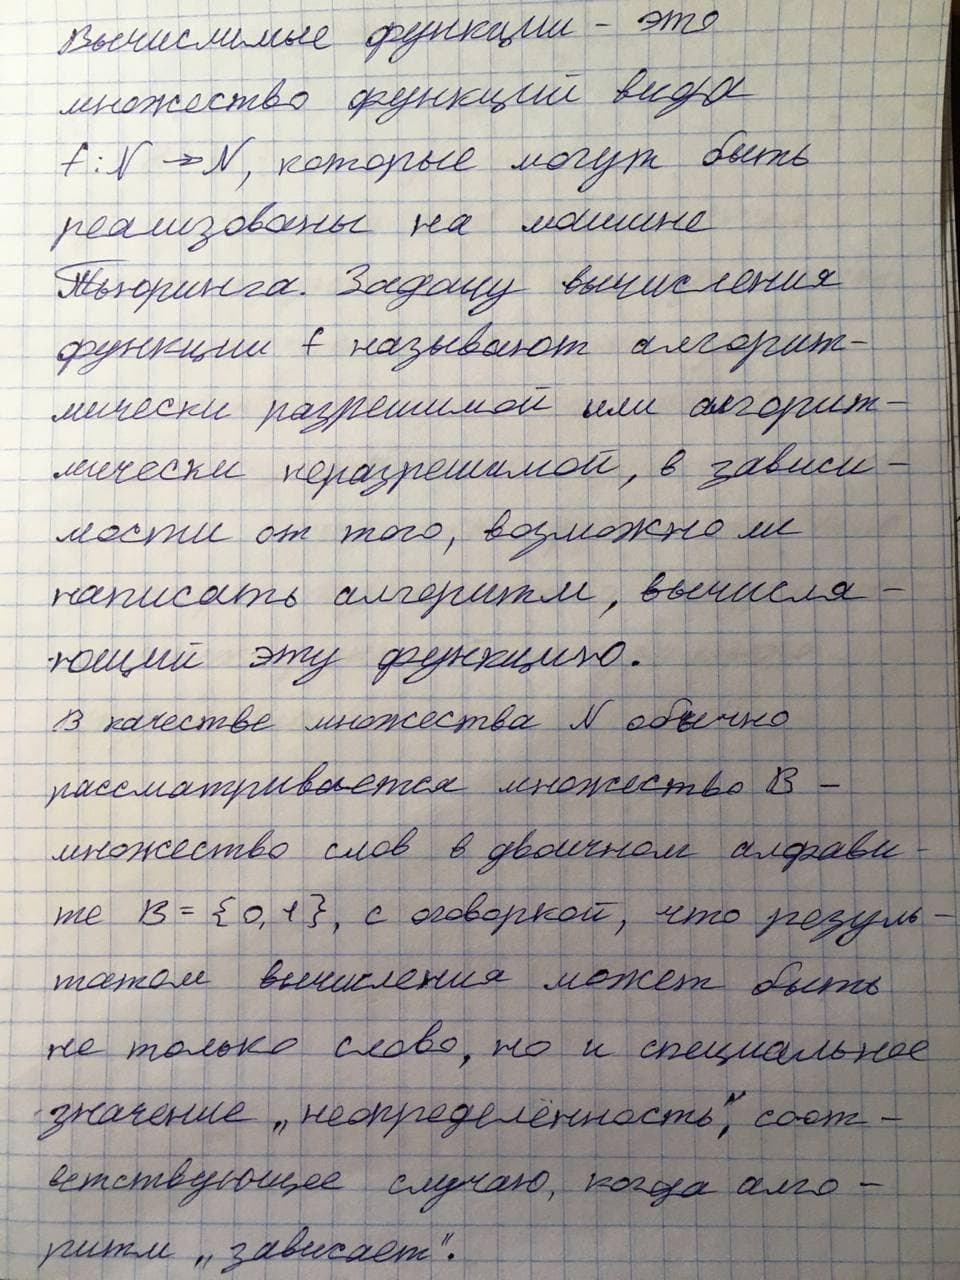 Вычислимые функции - это
множество функций вида
f : N → N, которые могут быть
реализованы на машине
Тьюринга. Задачу вычисления
функции f называют алгорит-
мически разрешимой или алгорит-
мически неразрешимой, в зависи-
мости от того, возможно ли
написать алгоритм, вычисля-
ющий эту функцию.
В качестве множества N обычно
рассматривается множество B -
множество слов в двоичном алфави-
те B = {0, 1}, с оговоркой, что резуль-
татом вычисления может быть
не только слово, но и специальное
значение „неопределённость“, соот-
ветствующее случаю, когда алго-
ритм „зависает“.